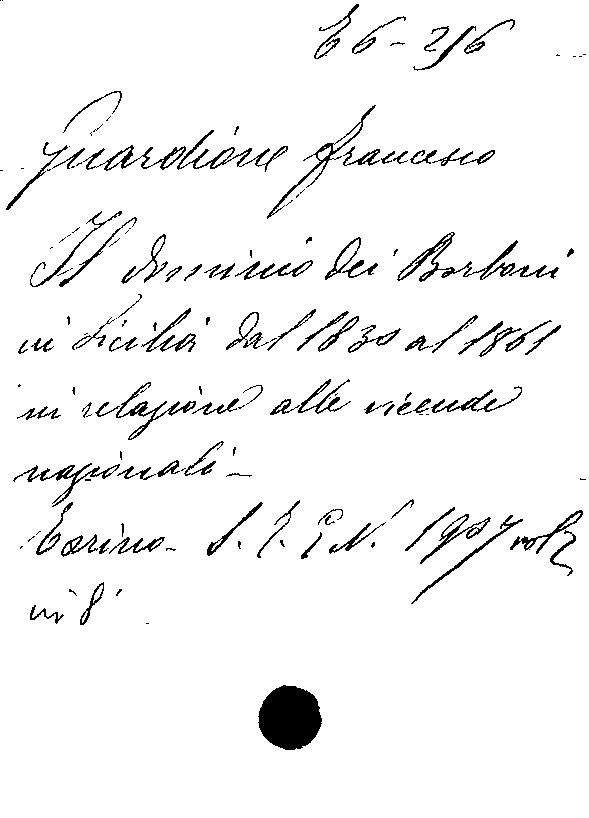 E 6 - 216
Guardione Francesco
Il dominio dei Borboni
in Sicilia dal 1830 al 1861
in relazione alle vicende
nazionali -
Torino - S. T. E. N. 1907 vol 2
in 8°